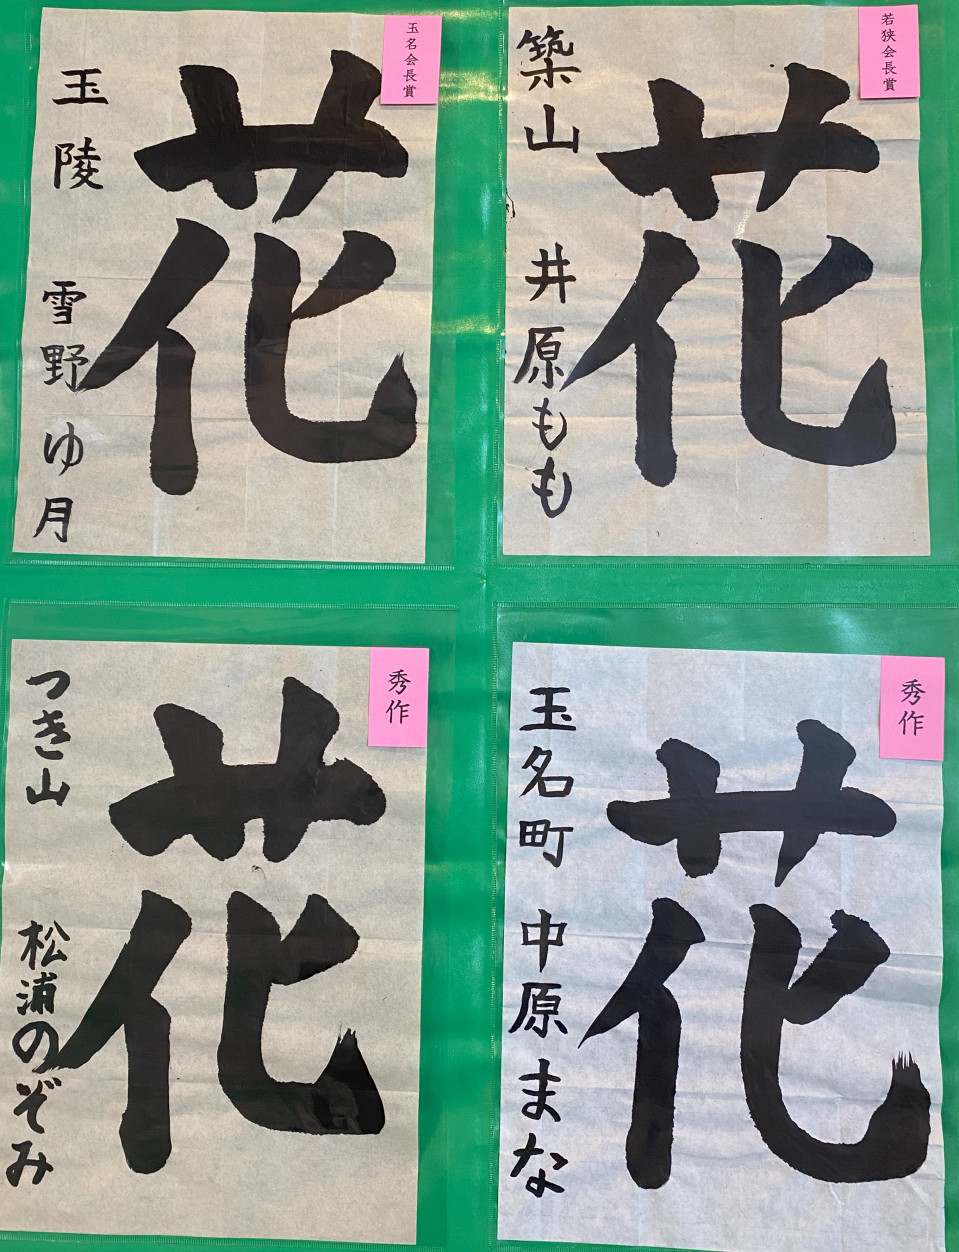 玉名会長賞
花
玉陵 雪野ゆ月
若狭会長賞
花
築山 井原もも
秀作
花
つき山 松浦のぞみ
秀作
花
玉名町 中原まな